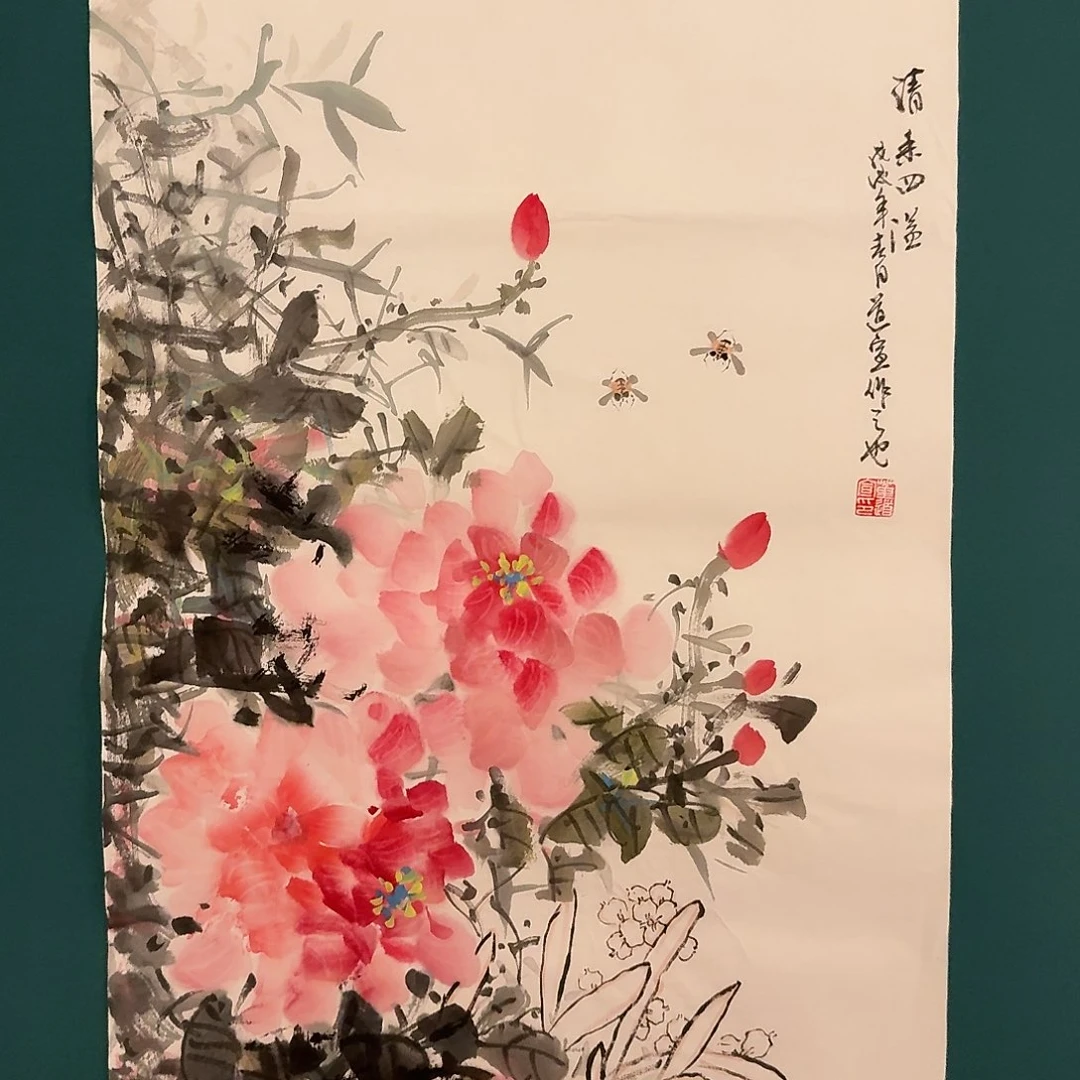 清香四溢
戊戌年春日道宣作之也